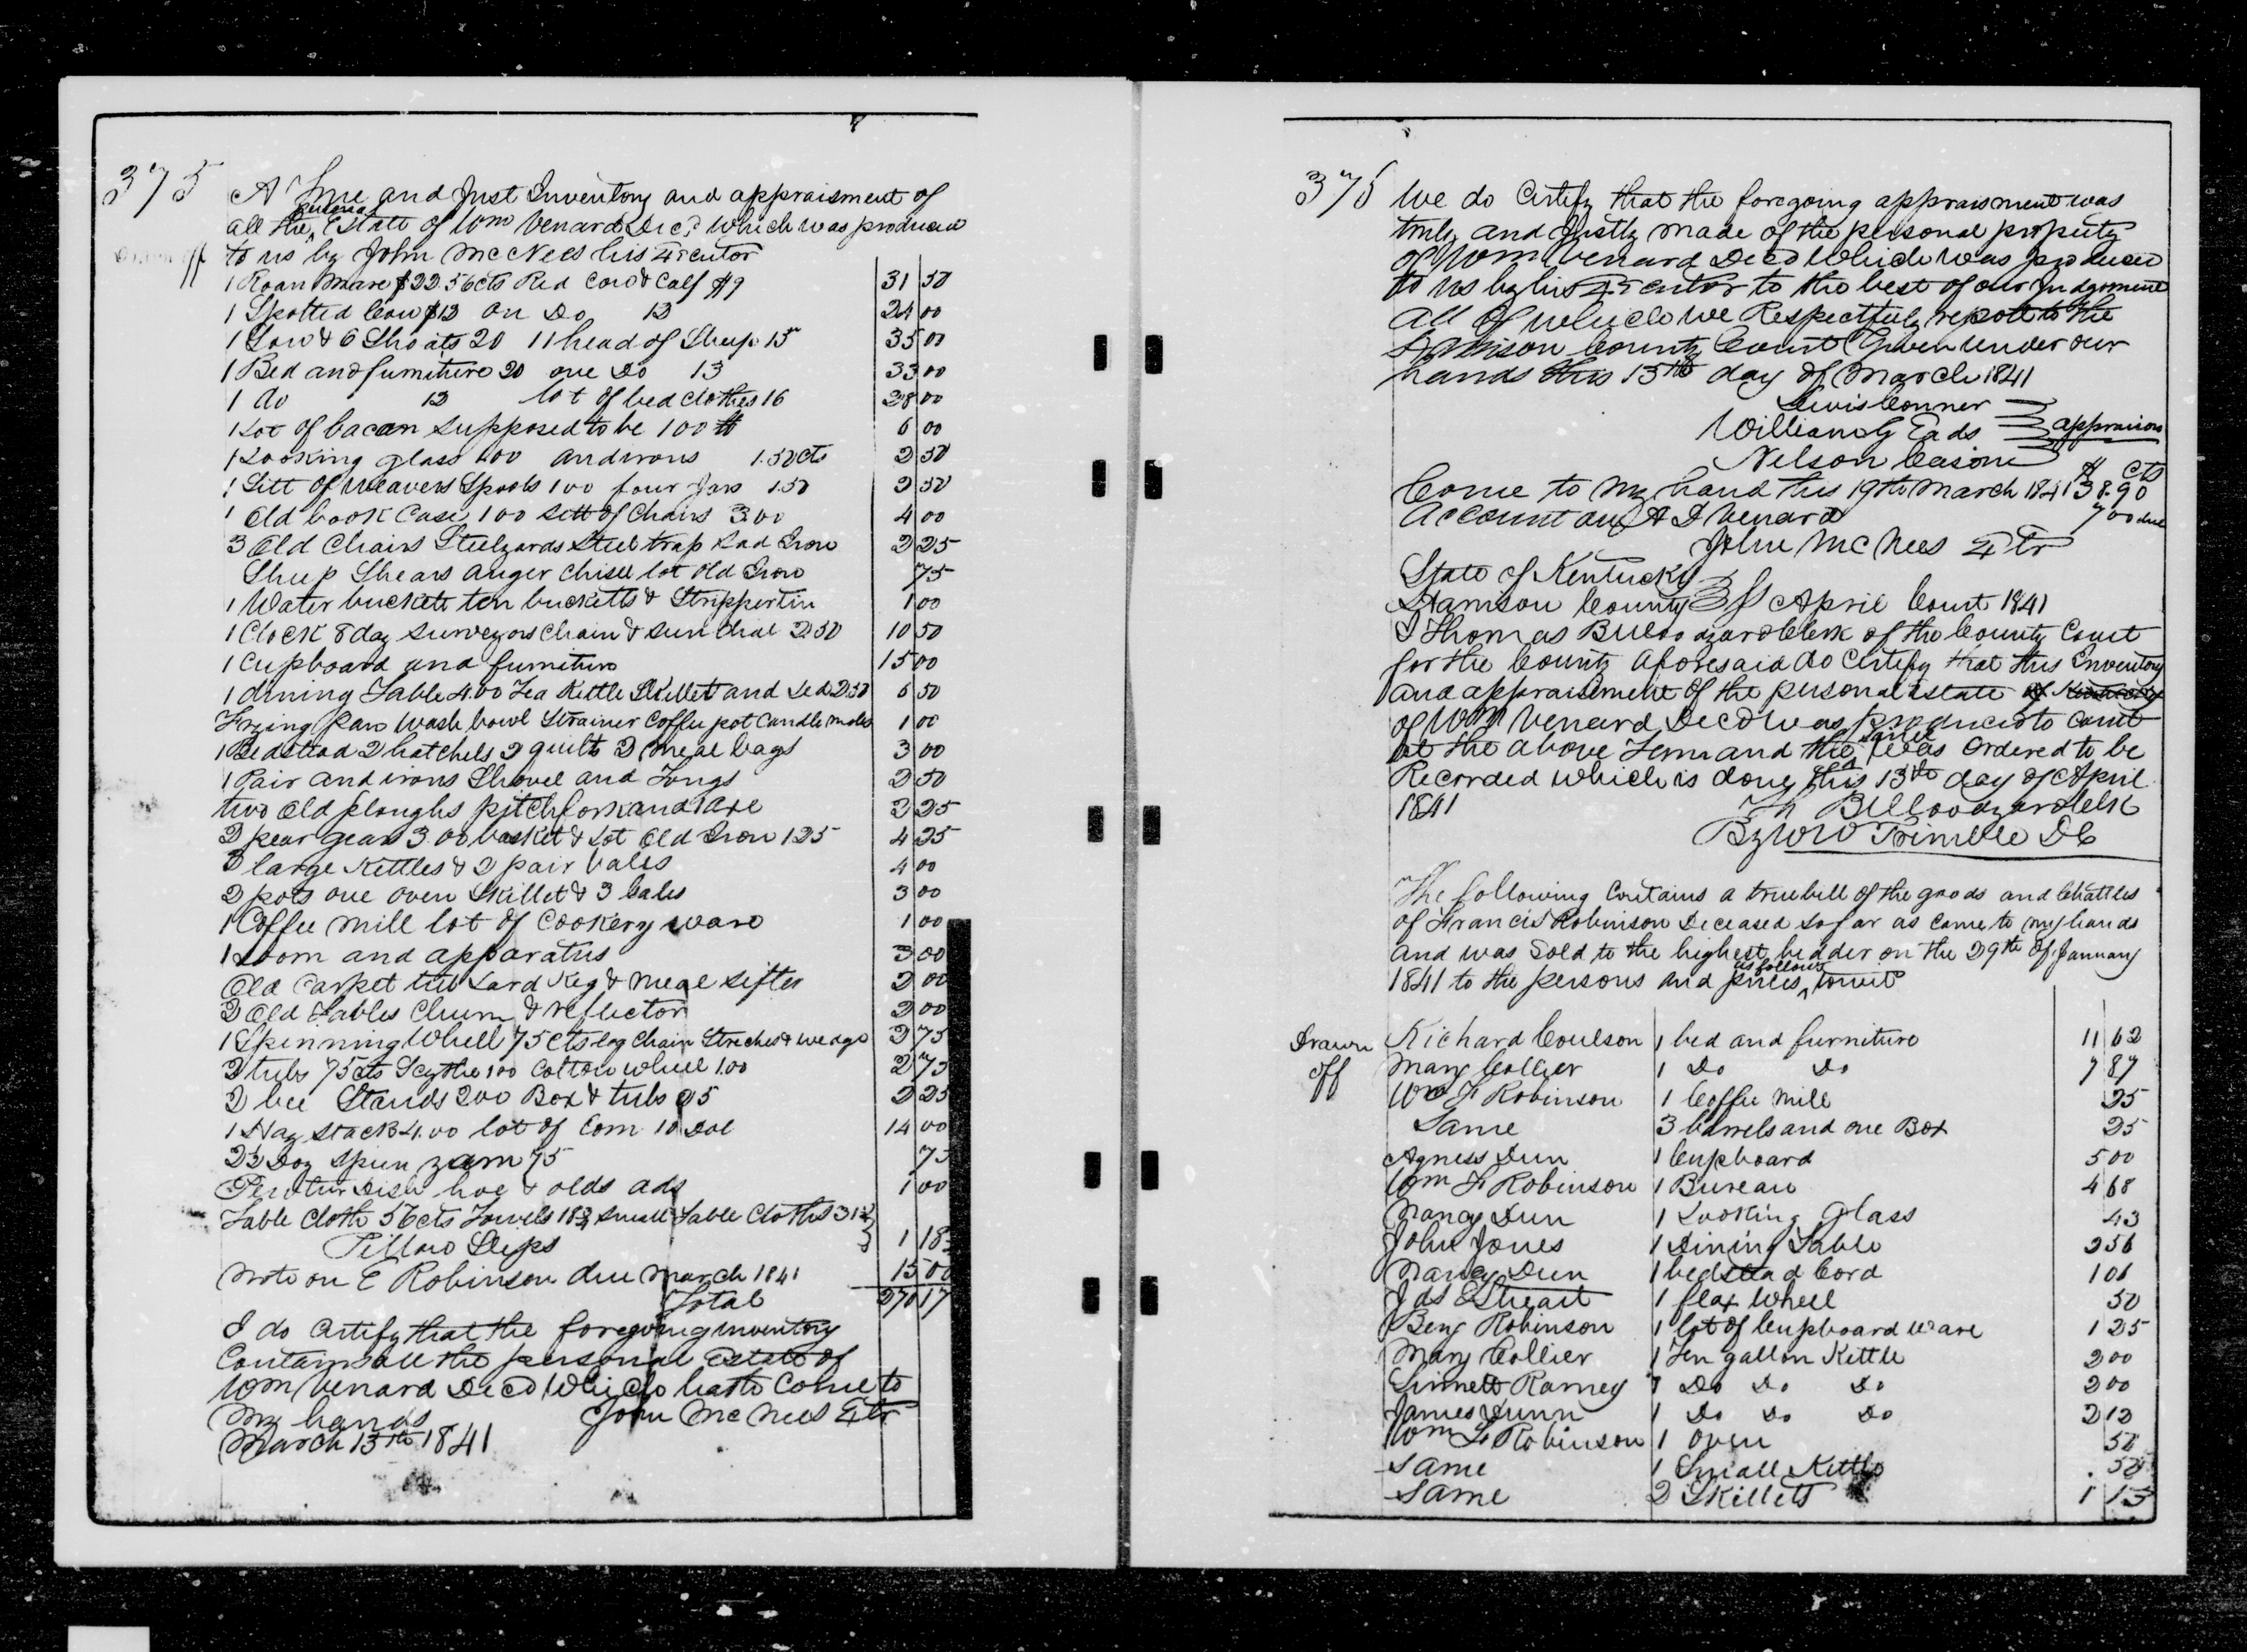 375
A True and Just Inventory and appraisment of
all the personal Estate of Wm Venard Decd which was produced
to us by John McNees his Exeutor
1 Roan Mare $22.50cts Red Cow & Calf $9 31 50
1 Spotted Cow $12 on Do 12 24 00
1 Sow & 6 Shoats 20 11 head of Sheep 15 35 00
1 Bed and furniture 20 one Do 13 33 00
1 do 12 lot of bed clothes 16 28 00
1 Lot of bacon supposed to be 100 lb 6 00
1 Looking glass 100 andirons 1.50cts 2 50
1 Sett of Weavers Spools 100 four Jars 1.50 2 50
1 Old book Case 1 00 Sett of Chairs 3.00 4 00
3 Old Chairs Steelyards Steel trap Sad Iron 2 25
Sheep Shears auger chisel lot old Iron 75
1 Water buckett ten bucketts & Strippertin 1 00
1 Clock 8 day Surveyors Chain & Sun dial 2.50 10 50
1 Cupboard and furniture 15 00
1 dining Table 4.00 Tea Kettle Skillet and Led 2.50 6 50
Frying pan Wash bowl Strainer Coffee pot Candle moles 1 00
1 Bedstead 2 hatchels 2 quilts 2 meal bags 3 00
1 Pair andirons Shovel and Tongs 2 50
two Old ploughs pitchfork and 1 axe 2 25
2 pear gears 3.00 basket & Lot Old Iron 1.25 4 25
3 large Kettles & 2 pair bales 4 00
2 pots one oven Skillet & 3 bales 3 00
1 Coffee Mill lot of Cookery ware 1 00
1 Loom and apparatus 3 00
Old Carpet tub Lard Keg & meal sifter 2 00
2 Old Tables Churn & reflector 2 00
1 Spinning Wheel 75cts log Chain Streches & wedge 2 75
2 tubs 75cts Scythe 100 Cotton wheel 1.00 2 75
2 bee Stands 200 Box & tubs 25 2 25
1 Hay Stack 4.00 lot of Corn 10 Dol 14 00
23 Doz Spun yarn 75 75
Pewter Dish hoe & olds ads 1 00
Table Cloth 56cts Towels 18¾ small Table Cloths 31¼
Pillow Slips 1 18¾
Note on E Robinson due March 1841 15 00
Total 270 17
I do Certify that the foregoing inventory
Contains all the personal Estate of
Wm Venard Decd Which hath Come to
my hands John McNees Extr
March 13th 1841
375 We do Certify that the foregoing appraisment was
truly and Justly made of the personal property
of Wm Venard Decd Which was produced
to us by his Exeutor to the best of our Judgement
all of which we Respectfully report to the
Harrison County Court Given under our
hands this 13th day of March 1841
Lewis Conner
William G Eads appraisors
Nelson Cason
$ cts
Come to my hand this 19th March 1841 38.90
Account on A D Venard 7 00 due
John McNees Extr
State of Kentucky
Harrison County Ss April Court 1841
I Thomas B Woodyard Clerk of the County Court
for the County aforesaid do Certify that this Inventory
and appraisement of the personal Estate
of Wm Venard Decd was produced to Court
at the above Term and the same was ordered to be
Recorded which is done this 13th day of April
1841 Th B Woodyard Clk
By W W Trimble DC
The following Contains a true bill of the goods and Chattles
of Francis Robinson Deceased so far as came to my hands
and was Sold to the highest bidder on the 29th of January
1841 to the persons and prices as follows towit
Drawn off
Richard Coulson 1 bed and furniture 11 62
Mary Collier 1 Do Do 7 87
Wm F Robinson 1 Coffee Mill 25
Same 3 barrels and one Box 25
Agness Dun 1 Cupboard 5 00
Wm F Robinson 1 Bureau 4 68
Nancy Dun 1 Looking Glass 43
John Jones 1 Dining Table 2 56
Nancy Dun 1 bedstead Cord 1 06
Jas Stuart 1 flax Wheel 50
Benj Robinson 1 lot of Cupboard Ware 1 25
Mary Collier 1 Ten gallon Kettle 2 00
Linnett Ramey 1 Do Do Do 2 00
James Dunn 1 Do Do Do 2 12
Wm F Robinson 1 Oven 50
Same 1 Small Kettle 50
Same 2 Skillets 1 13